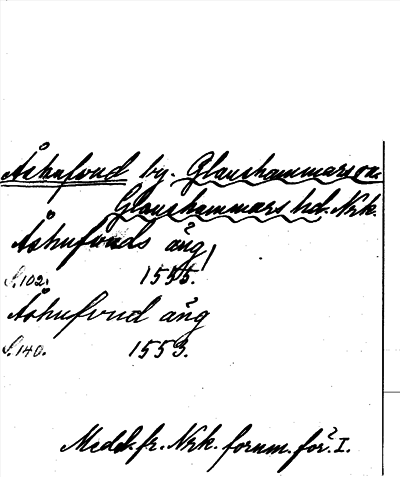 Åshufvud by. Glanshammars sn.
Glanshammars hd. Nrk.
Åshufvuds äng
S. 102. 1555.
Åshufvud äng
S. 140. 1553.
Medd. fr. Nrk. fornm. för. I.